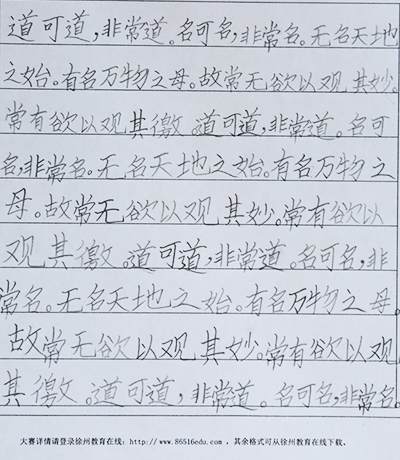 道可道,非常道。名可名,非常名。无名天地
之始。有名万物之母。故常无欲以观其妙。
常有欲以观其徼。道可道,非常道。名可
名,非常名。无名天地之始。有名万物之
母。故常无欲以观其妙。常有欲以
观其徼。道可道,非常道。名可名,非
常名。无名天地之始。有名万物之母。
故常无欲以观其妙。常有欲以观
其徼。道可道,非常道。名可名,非常名。
大赛详情请登录徐州教育在线:http://www.86516edu.com ,其余格式可从徐州教育在线下载。